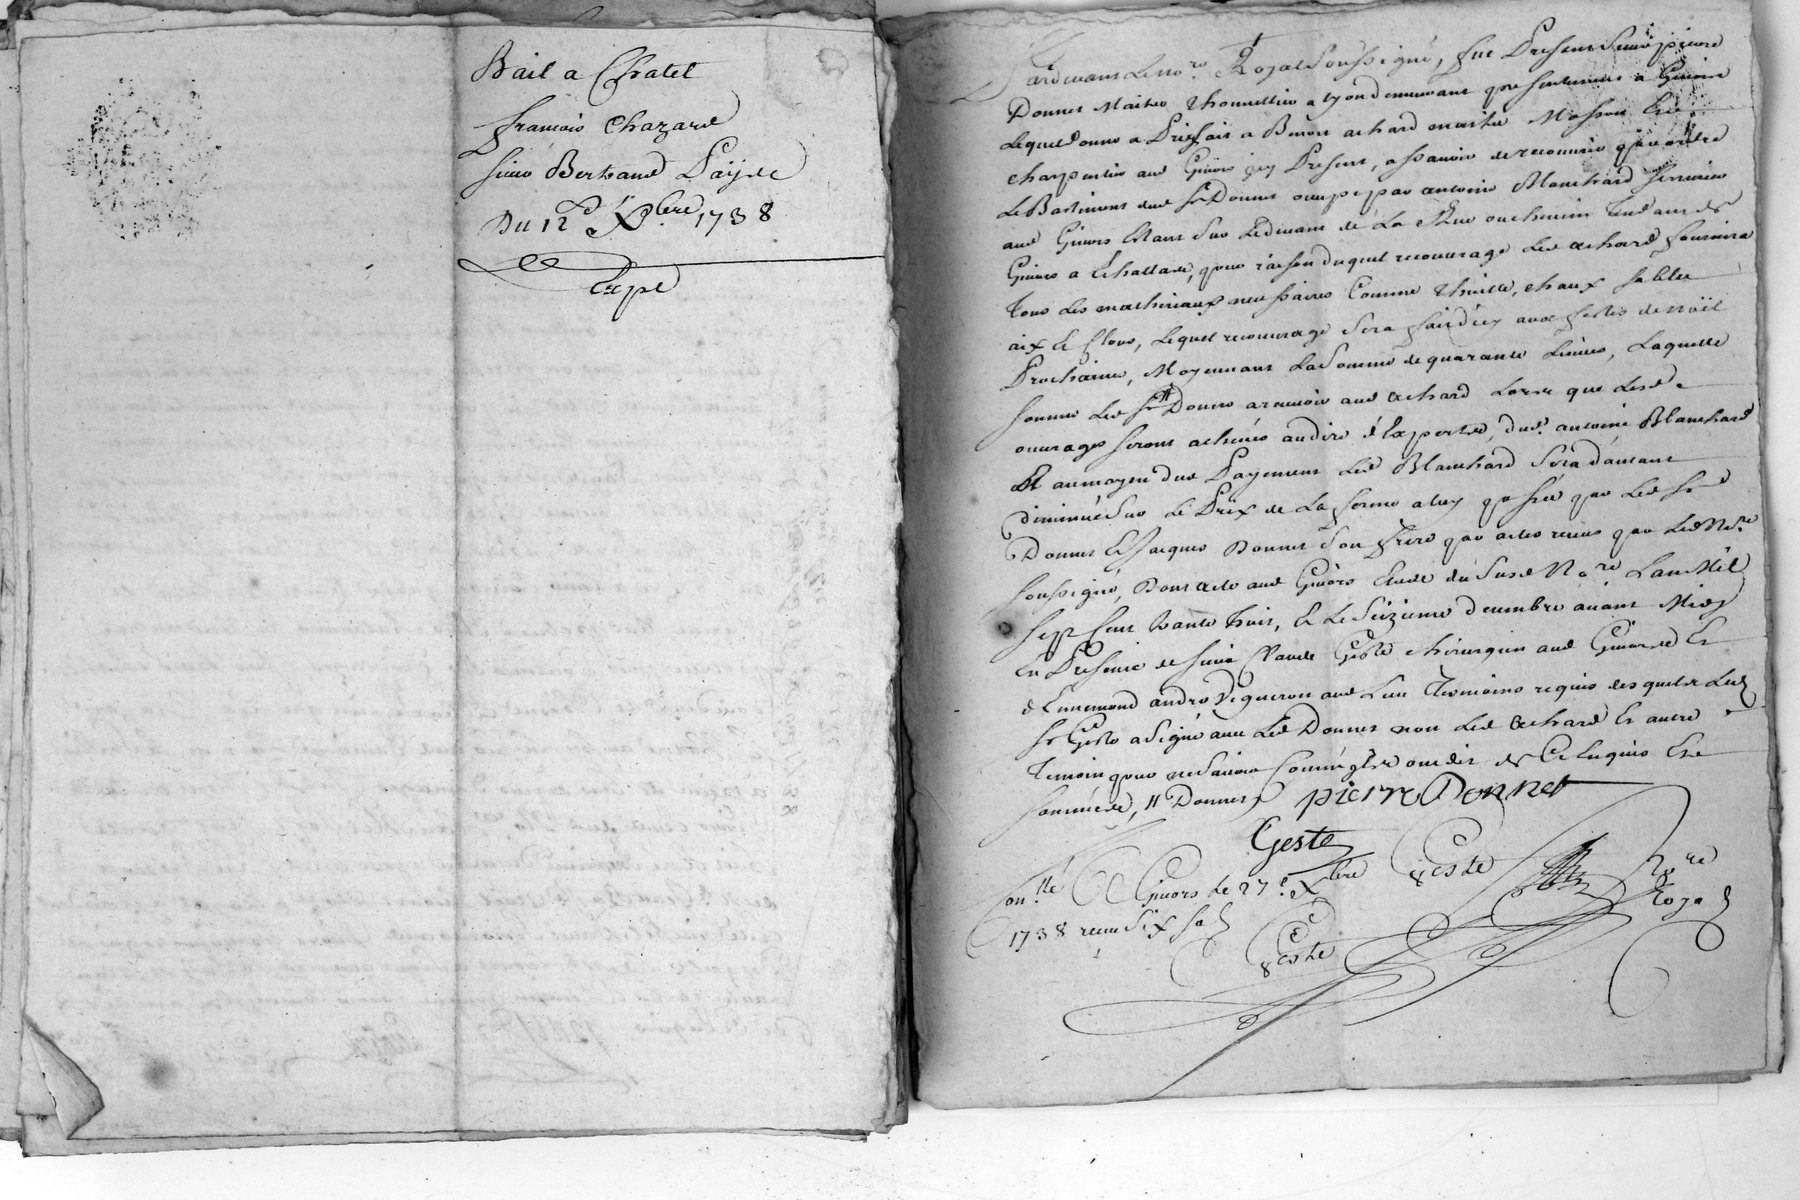 Bail a Chatel
francois Chazard
sieur Bertrand Payre
Du 12e Xbre 1738
Expé
Pardevant Le no.re Royal Soussigné, fut Present Sieur pierre
Donnet Maitre Thonnellier a Lyon demeurant presentement a Givors
Lequel donne a Prixfait a Benoit achard maitre Masson Et
charpentier aud Givors icy Present, a sçavoir de recouvrir
Le Bastiment dud Sr Donnet occupé par antoine Blanchard
aud Givors Estant Sur Le devant de La Rue ou chemin Tendant de
Givors a Echallas, pour raison duquel recouvrage Led achard fournira
Tous Les matheriaux necessaires Comme Thuille, chaux sable
aix Et Clous, Lequel recouvrage Sera fait d'icy aux festes de noël
Prochaines, Moyennant La Somme de quarante Livres, Laquelle
somme Led Sr Donnet a aud achard Lors que Lesd
ouvrages seront achevés au dire d'Experts, dud. antoine Blanchard
Et au moyen dud Payement Led Blanchard Sera d'autant
diminué Sur Le Prix de La ferme a luy passée par Led Sr
Donnet Et Jacques Donnet Son frere par actes receus par Led No.re
soussigné, Dont acte aud Givors Etude du Susd No.re L'an Mil
Sept Cent Trante huit, Et Le Seizieme decembre avant Midy
En Presence de Sieur Claude Geste chirurgien aud Givors Et
d'Ennemond andro Vigneron aud Lieu Temoins requis desquels Led
Sr Geste a Signé avec Led Donnet non Led achard Et autre
Temoin pour ne Savoir Comm'ils ont dit de Ce Enquis Et
sommés, Donnet pierre Donnet
Geste
Con.llé a Givors Le 27e Xbre
1738 receu Six s
Geste
Geste
No.re
Royal